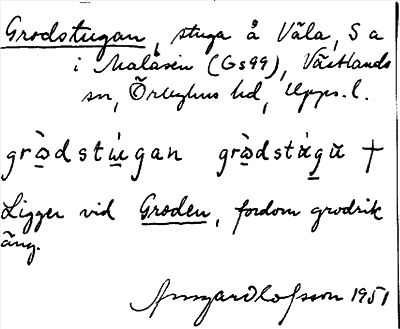 Grodstugan, stuga å Väla, S a
i Malåsen (Gs99), Västlands
sn, Örbyhus hd, Upps.l.
grὼdstu̇gan grὼdstu̇gä †
Ligger vid Groden, fordom grodrik
äng.
Olofsson 1951